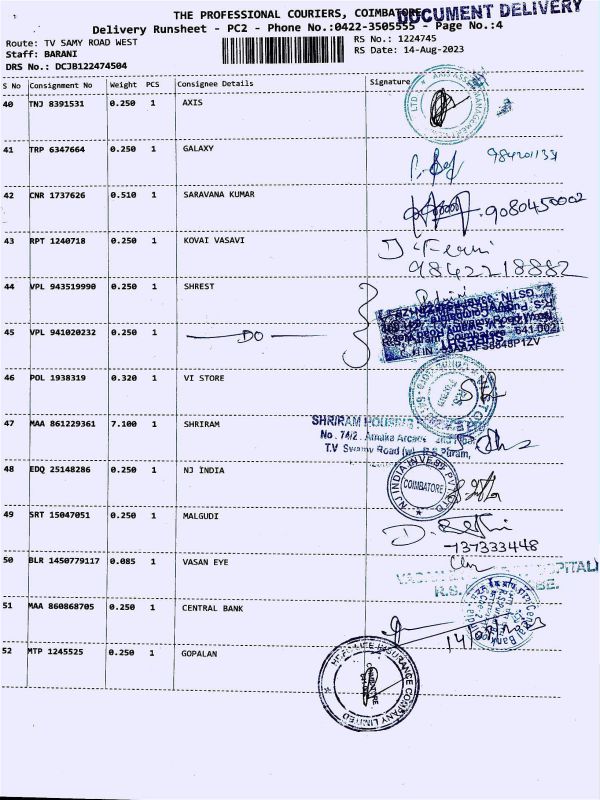 THE PROFESSIONAL COURIERS, COIMBATORE
DOCUMENT DELIVERY
Delivery Runsheet - PC2 - Phone No.:0422-3505555 - Page No.:4
Route: TV SAMY ROAD WEST
RS No.: 1224745
Staff: BARANI
RS Date: 14-Aug-2023
DRS No.: DCJB122474504
S No Consignment No Weight PCS Consignee Details Signature
40 TNJ 8391531 0.250 1 AXIS
41 TRP 6347664 0.250 1 GALAXY
42 CNR 1737626 0.510 1 SARAVANA KUMAR 9080450002
43 RPT 1240718 0.250 1 KOVAI VASAVI
9842218882
44 VPL 943519990 0.250 1 SHREST
45 VPL 941020232 0.250 1 DO
641 002
46 POL 1938319 0.320 1 VI STORE
47 MAA 861229361 7.100 1 SHRIRAM
SHRIRAM HOUSING
No. 74/2, Amaka Arcade
T.V Swamy Road (w), R.S Puram,
48 EDQ 25148286 0.250 1 NJ INDIA
NJ INDIA INVEST PVT LTD
COIMBATORE
49 SRT 15047051 0.250 1 MALGUDI
137333448
50 BLR 1450779117 0.085 1 VASAN EYE
VASAN HOSPITAL
R.S. CBE.
51 MAA 860868705 0.250 1 CENTRAL BANK
Central Bank
52 MTP 1245525 0.250 1 GOPALAN
LIFE INSURANCE COMPANY LIMITED